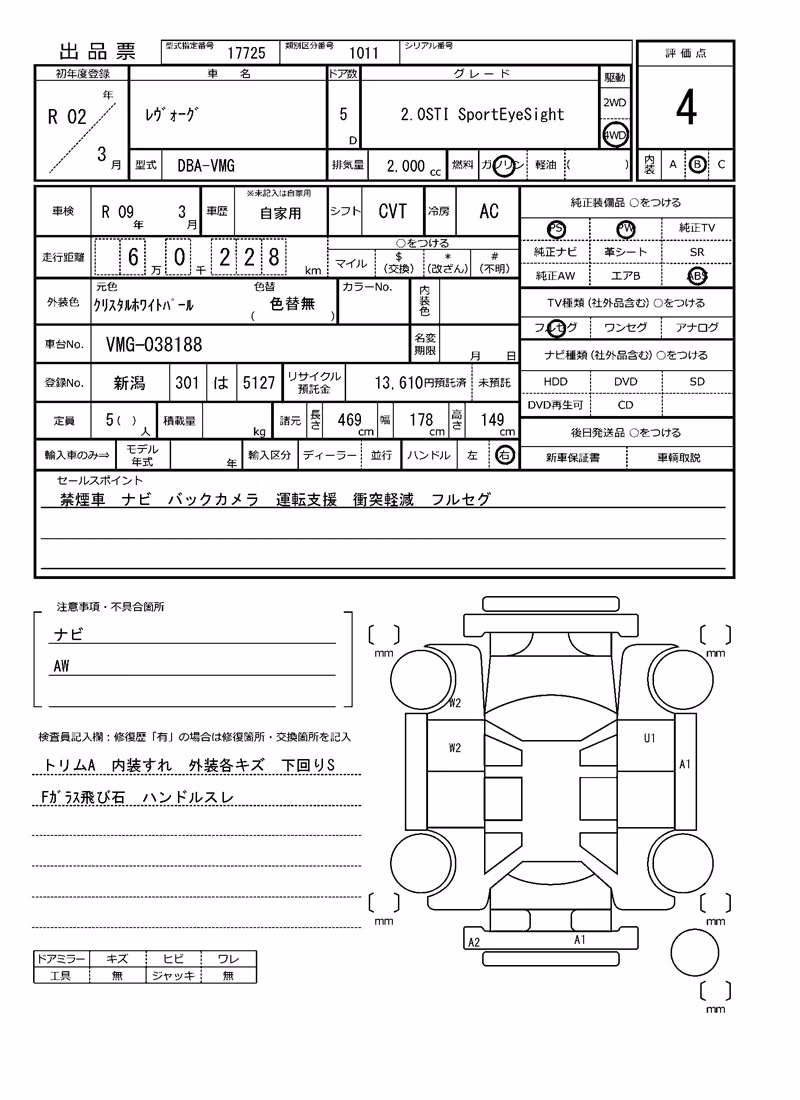 出品票 型式指定番号 17725 類別区分番号 1011 シリアル番号
評価点
4
内装 A B C
初年度登録 車名 ドア数 グレード 駆動
R 02 年 3 月
ﾚｳﾞｫｰｸﾞ 5 D 2.0STI SportEyeSight 2WD 4WD
型式 DBA-VMG 排気量 2,000 cc 燃料 ガソリン 軽油 ( )
車検 R 09 年 3 月 車歴 ※未記入は自家用 自家用 シフト CVT 冷房 AC
走行距離 6 万 0 千 2 2 8 km
○をつける
マイル $ (交換) * (改ざん) # (不明)
外装色 元色 ｸﾘｽﾀﾙﾎﾜｲﾄﾊﾟｰﾙ 色替 ( 色替無 ) カラーNo. 内装色
車台No. VMG-038188 名変期限 月 日
登録No. 新潟 301 は 5127 リサイクル預託金 13,610円預託済 未預託
定員 5( ) 人 積載量 kg 諸元 長さ 469 cm 幅 178 cm 高さ 149 cm
輸入車のみ⇒ モデル年式 年 輸入区分 ディーラー 並行 ハンドル 左 右
純正装備品 ○をつける
PS PW 純正TV
純正ナビ 革シート SR
純正AW エアB ABS
TV種類(社外品含む)○をつける
フルセグ ワンセグ アナログ
ナビ種類(社外品含む)○をつける
HDD DVD SD
DVD再生可 CD
後日発送品 ○をつける
新車保証書 車輌取説
セールスポイント
禁煙車 ナビ バックカメラ 運転支援 衝突軽減 フルセグ
注意事項・不具合箇所
ナビ
AW
検査員記入欄：修復歴「有」の場合は修復箇所・交換箇所を記入
トリムA 内装すれ 外装各キズ 下回りS
Fｶﾞﾗｽ飛び石 ハンドルスレ
ドアミラー キズ ヒビ ワレ
工具 無 ジャッキ 無
mm mm
W2
W2 U1
A1
mm mm
A2 A1
mm